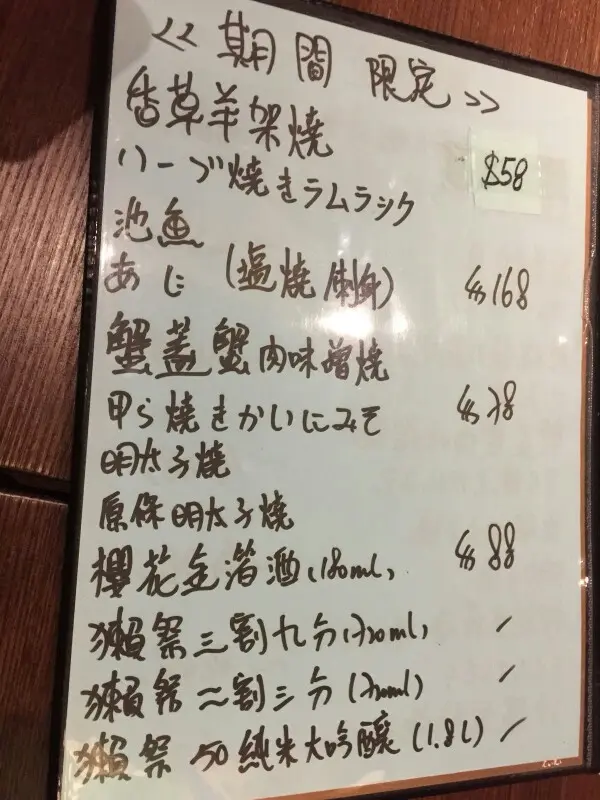 << 期間 限定 >>
香草羊架燒
ハーブ焼きラムラック $58
池魚
あじ (塩燒/刺身) $168
蟹蓋蟹肉味增燒
甲ら焼きかいにみそ $78
明太子燒
原條明太子燒
櫻花金箔酒(180ml) $88
獺祭三割九分(720ml)
獺祭二割三分(720ml)
獺祭50純米大吟釀(1.8L)